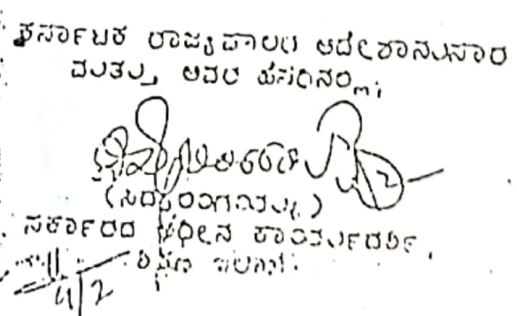 ಕರ್ನಾಟಕ ರಾಜ್ಯಪಾಲರ ಆದೇಶಾನುಸಾರ
ಮತ್ತು ಅವರ ಹೆಸರಿನಲ್ಲಿ,
ಸರ್ಕಾರದ ಅಧೀನ ಕಾರ್ಯದರ್ಶಿ,
ಶಿಕ್ಷಣ ಇಲಾಖೆ.
4/2